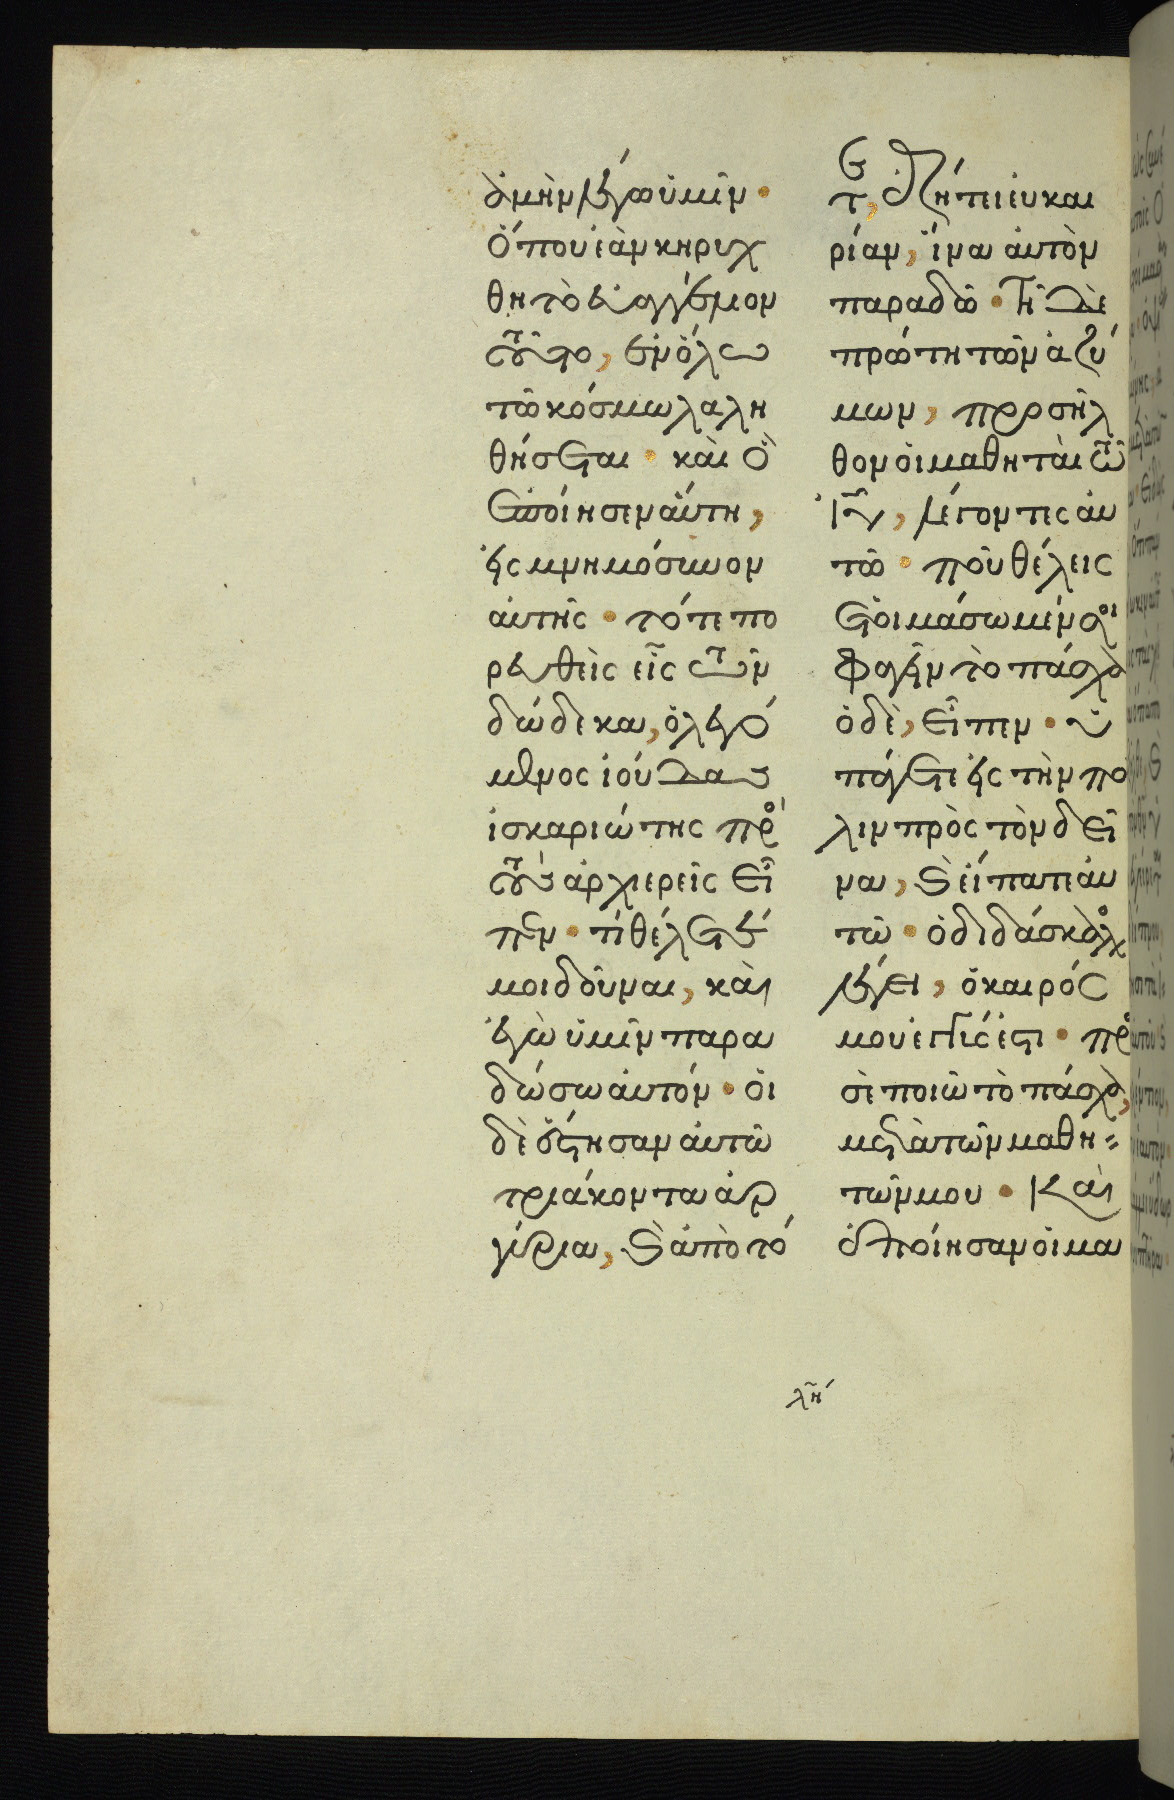 ἀμὴν λέγω ὑμῖν·
ὅπου ἐὰν κηρυχ
θῆ τὸ εὐαγγέλιον
τοῦτο, ἐν ὅλω
τῶ κόσμω λαλη
θήσεται· καὶ ὃ
ἐποίησεν αὕτη,
εἰς μνημόσυνον
αὐτῆς· τότε πο
ρευθεὶς εἷς τῶν
δώδεκα, ὁ λεγό
μενος ἰούδας
ἰσκαριώτης πρὸς
τοὺς ἀρχιερεῖς εἶ
πεν· τί θέλετέ
μοι δοῦναι, κἀι
ἐγὼ ὑμῖν παρα
δώσω αὐτόν· οἱ
δὲ ἔστησαν αὐτῶ
τριάκοντα ἀρ
γύρια, καὶ ἀπὸ τό
τε, ἐζήτει εὐκαι
ρίαν, ἵνα αὐτὸν
παραδῶ· Τῆ δὲ
πρώτη τῶν ἀζύ
μων, προσῆλ
θον οἱ μαθηταὶ τῶ
ἰυ, λέγοντες αὐ
τῶ· ποῦ θέλεις
ἑτοιμάσωμέν σοι
φαγεῖν τὸ πάσχα
ὁ δὲ, εἶπεν· ὑ
πάγετε εἰς τὴν πό
λιν πρὸς τὸν δεῖ
να, καὶ εἴπατε αὐ
τῶ· ὁ διδάσκαλος
λέγει, ὁ καιρός
μου ἐγγύς ἐστι· πρὸς
σὲ ποιῶ τὸ πάσχα,
μετὰ τῶν μαθη
τῶν μου· Καὶ
ἐποίησαν οἱ μα
λη